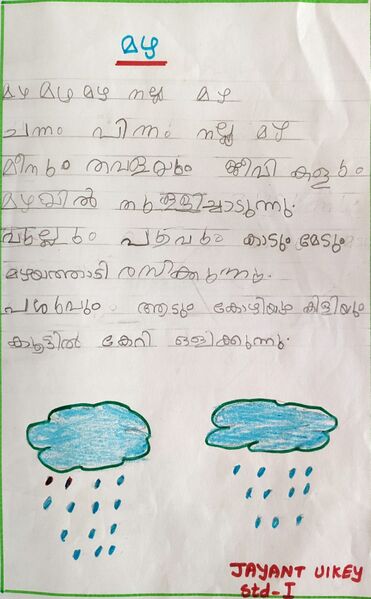 മഴ
മഴ മഴ മഴ നല്ല മഴ
ചന്നം പിന്നം നല്ല മഴ
മീനും തവളയും ജീവി കളും
മഴയിൽ തുള്ളിച്ചാടുന്നു.
പുല്ലും പൂവും കാടും മേടും
മഴയത്താടി രസിക്കുന്നു.
പശുവും ആടും കോഴിയും കിളിയും
കൂട്ടിൽ കേറി ഒളിക്കുന്നു.
JAYANT UIKEY
Std-I